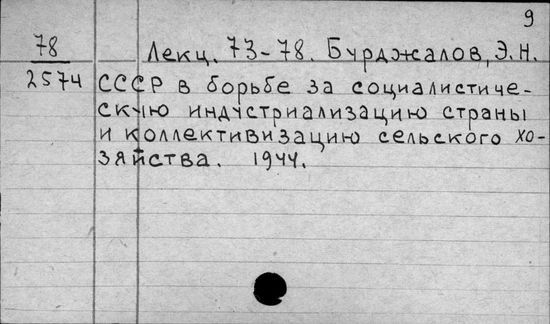 9
78 Лекц. 73-78. Бурджалов, Э.Н.
2574 СССР в борьбе за социалистиче-
скую индустриализацию страны
и коллективизацию сельского хо-
зяйства. 1944.